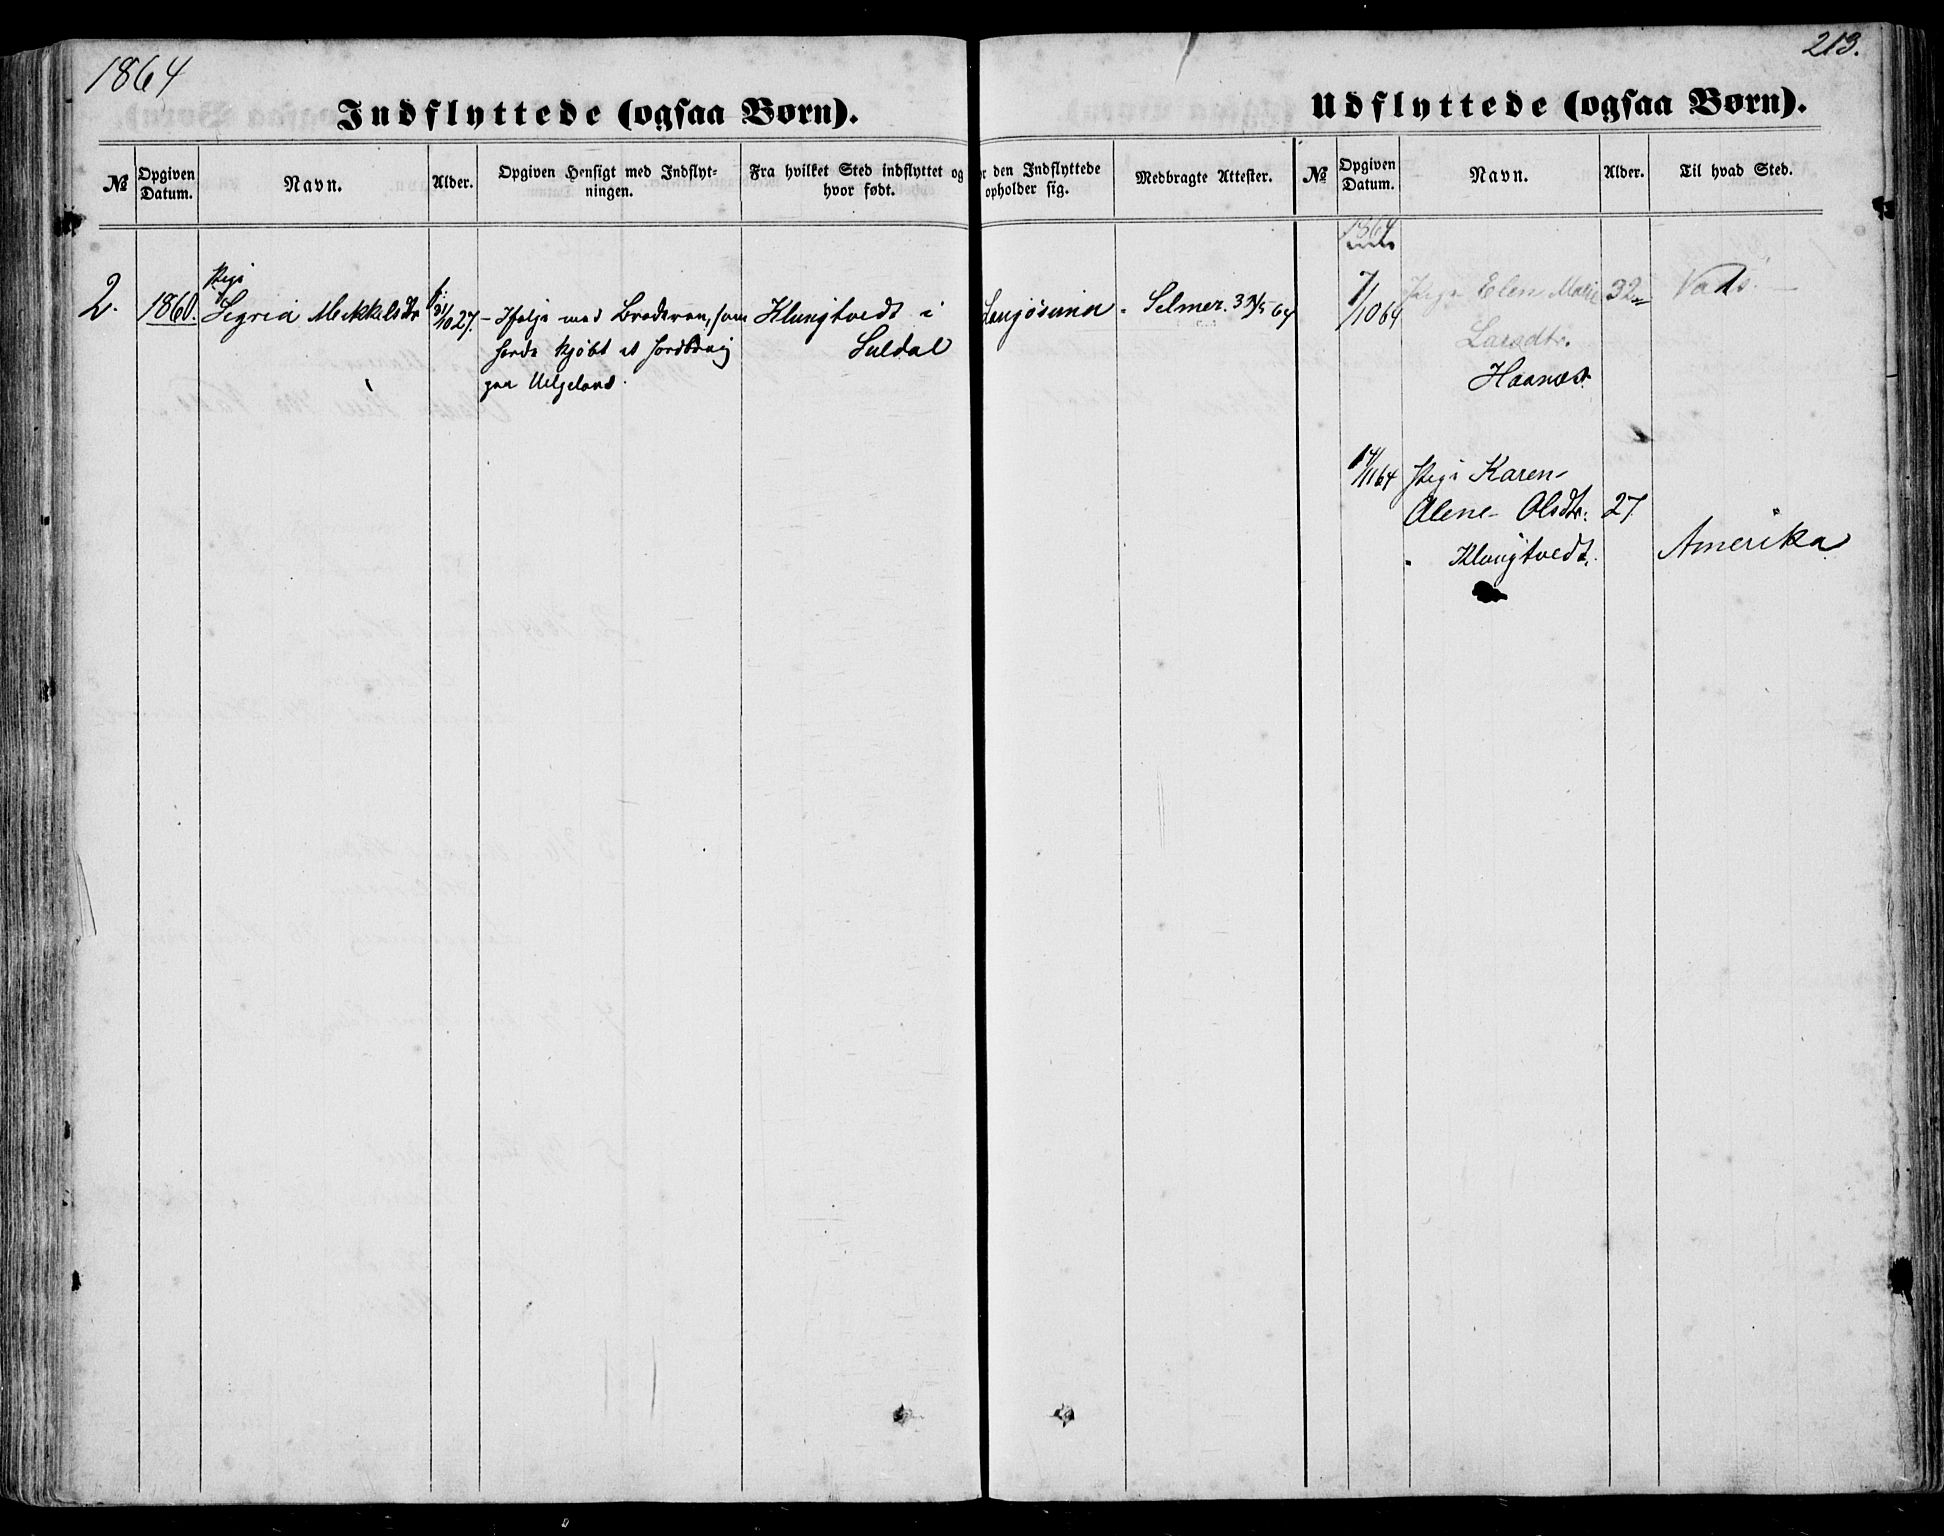 1864
213.
Indflyttede (ogsaa Børn).
Udflyttede (ogsaa Børn).
№ Opgiven Datum. Navn. Alder. Opgiven Hensigt med Indflyt- ningen. Fra hvilket Sted indflyttet og hvor født.
r den Indflyttede opholder sig. Medbragte Attester. № Opgiven Datum. Navn. Alder. Til hvad Sted.
2. 1860. Pige
Sigrid Mekkelsdtr 31/10 27.
Ifølge med Broderen, som
havde kjøbt et Jordbrug
paa Helgeland.
Klungtvedt i
Suldal
Selmer. 64
1864
7/10 64 Pige Elen Marie 32 Vads.
Larsdtr.
Haanæs.
/11 64 Pige Karen
Olene Olsdtr. 27
Klungtvedt. Amerika